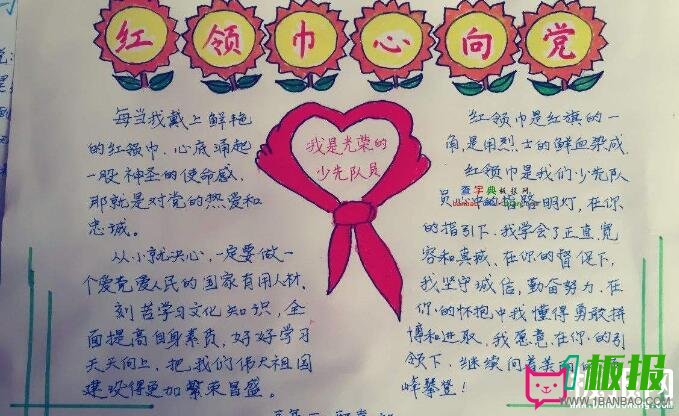 红领巾心向党
每当我戴上鲜艳
的红领巾、心底涌起
一股神圣的使命感,
那就是对党的热爱和
忠诚。
从小就决心,一定要做一
个爱党爱人民的国家有用人材.
刻苦学习文化知识,全
面提高自身素质,好好学习
天天向上,把我们伟大祖国
建设得更加繁荣昌盛。
我是光荣的
少先队员
红领巾是红旗的一
角是用烈士的鲜血染成
红领巾是我们少先队
员心中的指路明灯,在你
的指引下.我学会了正直.宽
容和真诚、在你的督促下,
我坚守诚信,勤奋努力、在
你的怀抱中我懂得勇敢拼
搏和进取,我愿意在你的引
领下,继续向着美丽的
峰攀登!
查字典
板报网
1板报
WWW.1BANBAO.COM